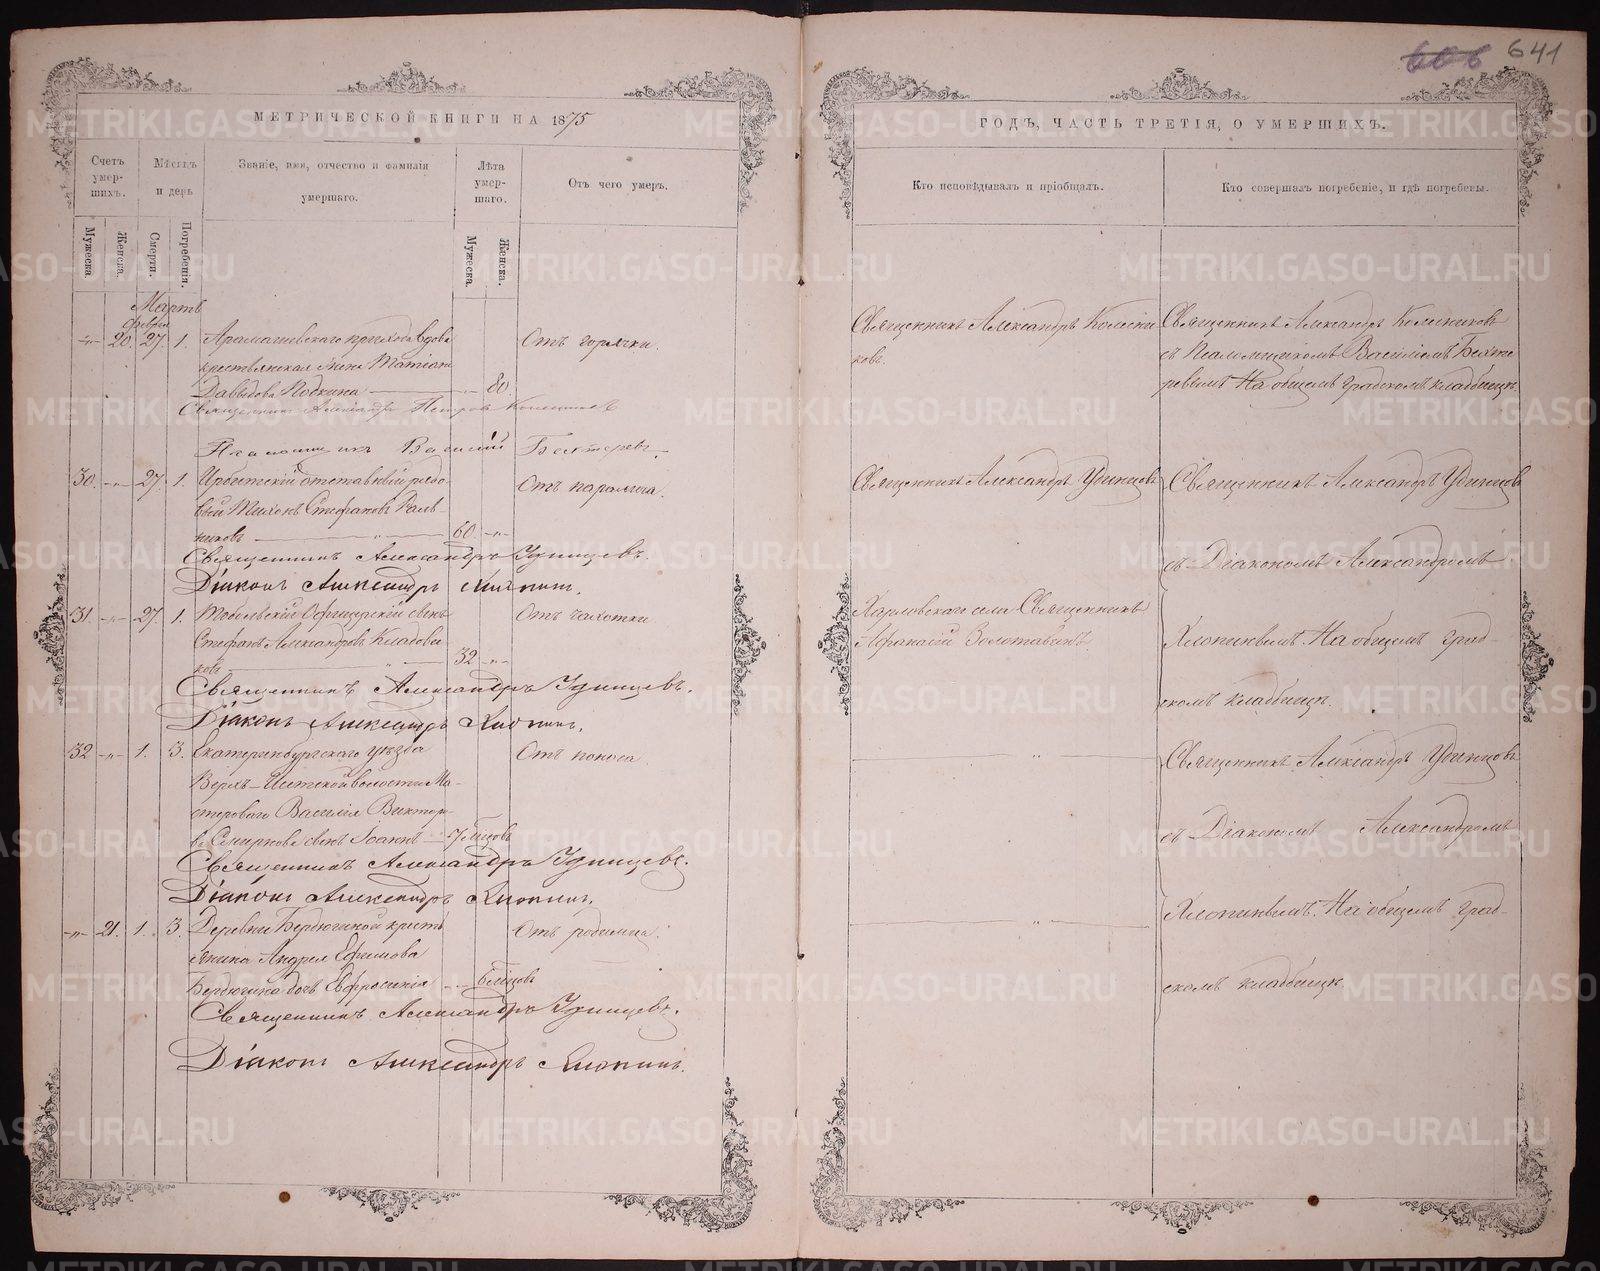 606 641
МЕТРИЧЕСКОЙ КНИГИ НА 1875
ГОДЪ, ЧАСТЬ ТРЕТІЯ, О УМЕРШИХЪ.
Счетъ умер-шихъ.
Мѣсяцъ и день
Званіе, имя, отчество и фамилія умершаго.
Лѣта умер-шаго.
Отъ чего умеръ.
Кто исповѣдывалъ и пріобщалъ.
Кто совершалъ погребеніе, и гдѣ погребены.
Мужеска.
Женска.
Смерти.
Погребенія.
Мужеска.
Женска.
Мартъ
Феврал
-„- 20. 27. 1. Арамашевскаго прихода вдова
крестьянская жена
Давыдова 80.
Отъ горячки.
Священникъ Александръ Колесни
ковъ.
Священникъ Александръ Колесниковъ
съ Псаломщикомъ Василіемъ Бехте
ревымъ На общемъ градскомъ кладбищѣ
Священникъ Александръ Петровъ Колесниковъ
Псаломщикъ Василій Бехтеревъ.
30. -„- 27. 1. Ирбитскій отставный рядо
вый Тихонъ Стефановъ
никовъ 60. -„-
Отъ паралича.
Священникъ Александръ Удинцовъ
Священникъ Александръ Удинцовъ
Священникъ Александръ Удинцевъ.
съ Діакономъ Александромъ
Діаконъ Александръ Хлопинъ.
31. -„- 27. 1. Тобольскій Офицерскій сынъ
Стефанъ Александровъ Кладови
ковъ 32 -„-
Отъ чахотки
Харловскаго села Священникъ
Афанасій Золотавинъ.
Хлопинымъ На общемъ град-
Священникъ Александръ Удинцевъ.
скомъ кладбищѣ.
Діаконъ Александръ Хлопинъ.
32 -„- 1. 3. Екатеринбургскаго уѣзда
Верхъ-Исетской волости Ма-
стероваго Василія Виктор-
ва Смирнова сынъ Іоаннъ 7 мѣсцовъ
Отъ поноса.
Священникъ Александръ Удинцовъ
съ Діакономъ Александромъ
Священникъ Александръ Удинцевъ.
Діаконъ Александръ Хлопинъ.
-„- 21. 1. 3. Деревни Бердюгиной кресть
янина Андрея Ефимова
Бердюгина дочь Евфросинія 6 мѣсцовъ
Отъ родимца.
Хлопинымъ. На общемъ град-
скомъ кладбищѣ
Священникъ Александръ Удинцевъ.
Діаконъ Александръ Хлопинъ.
METRIKI.GASO-URAL.RU